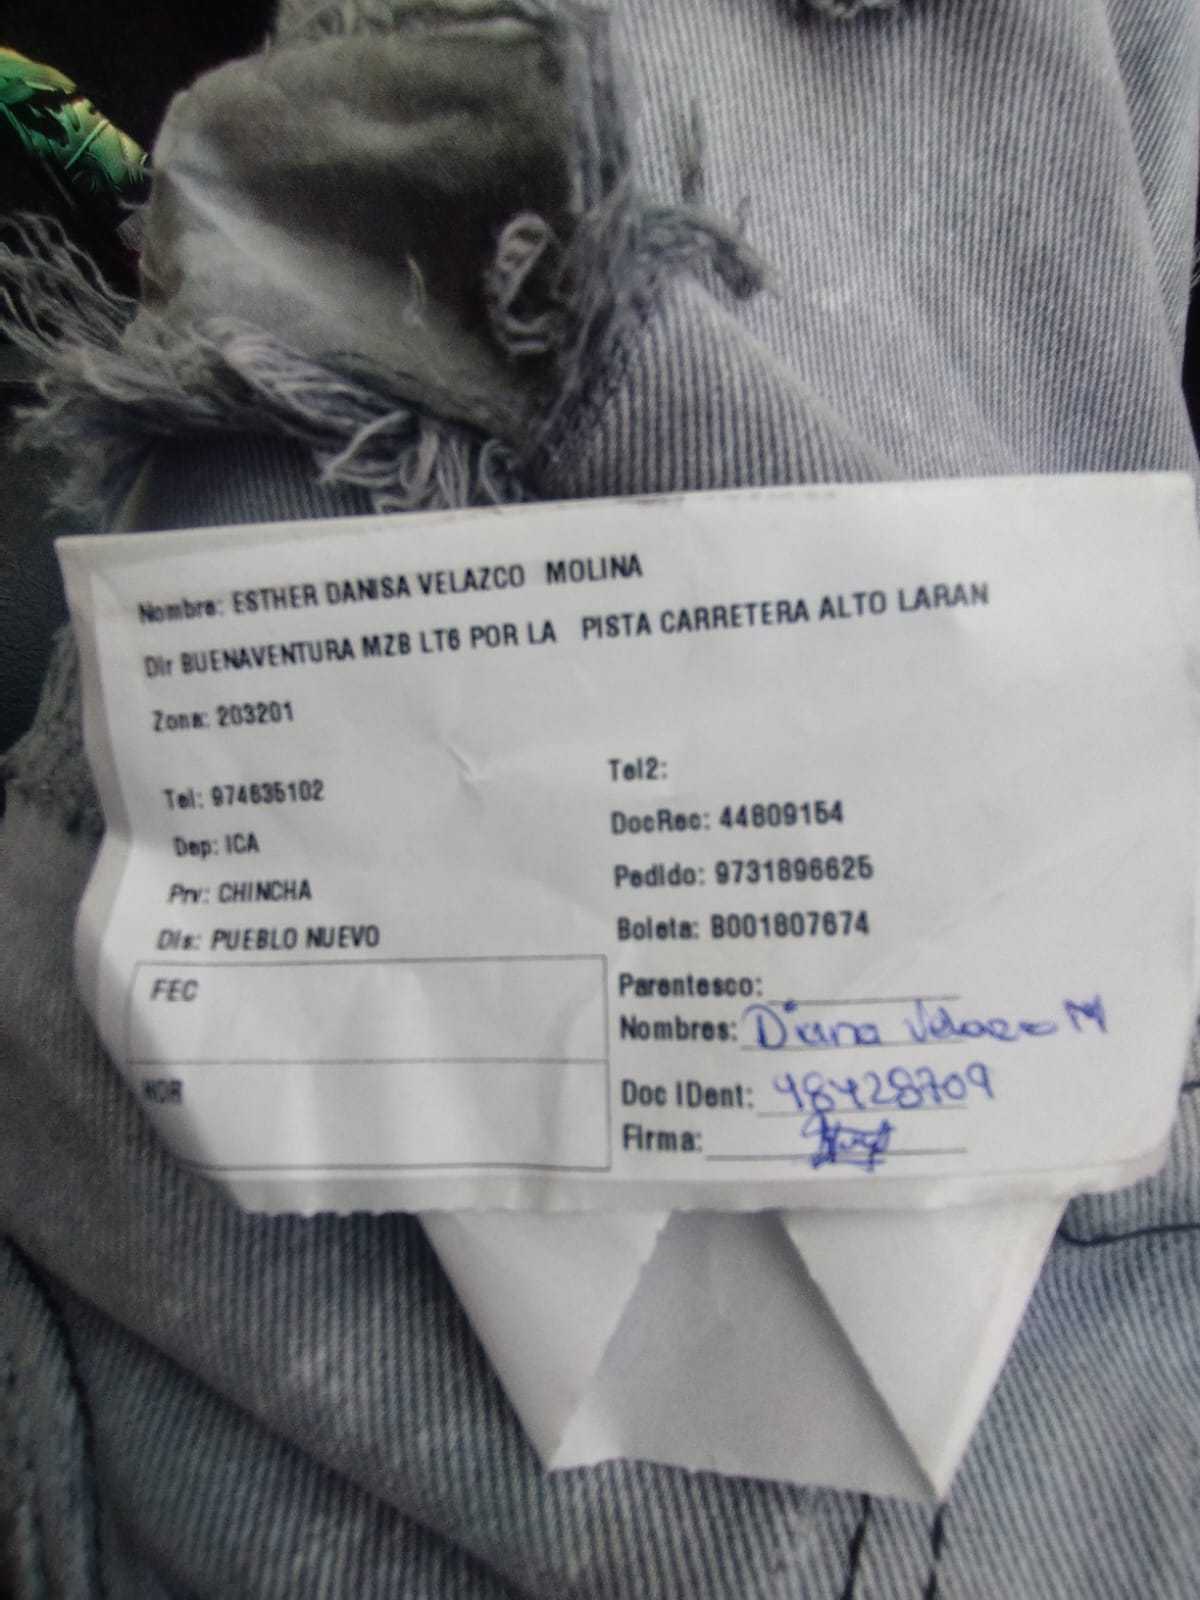 Nombre: ESTHER DANISA VELAZCO MOLINA
Dir BUENAVENTURA MZB LT6 POR LA PISTA CARRETERA ALTO LARAN
Zona: 203201
Tel: 974635102
Tel2:
Dep: ICA
DocRec: 44809154
Prv: CHINCHA
Pedido: 9731896625
Dis: PUEBLO NUEVO
Boleta: B001807674
FEC
Parentesco:
Nombres: Diana Velazco M
HOR
Doc IDent: 48428709
Firma: